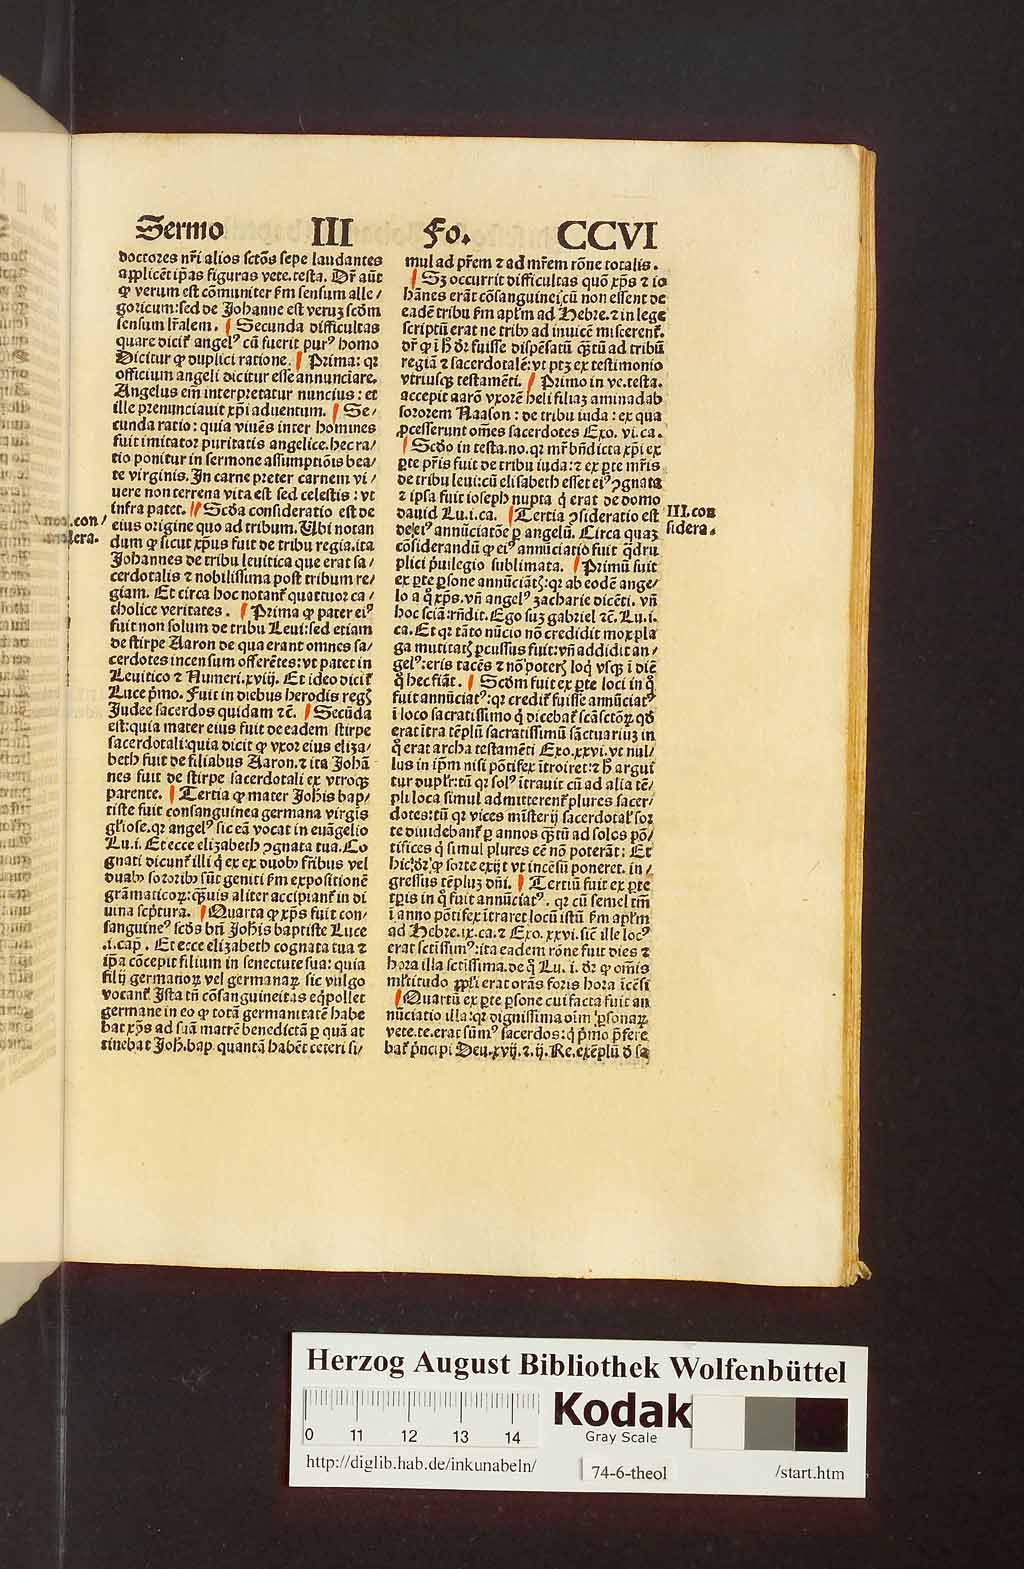 Sermo III Fo. CCVI
doctores nr̃i alios sctõs sepe laudantes
applicẽt ip̃as figuras vete. testa. Dr̃ aũt
ꝙ verum est cõmuniter ẜm sensum alle/
goricum: sed de Johanne est veruꝫ scd̃m
sensum lr̃alem. Secunda difficultas
quare dicit᷑ angelꝰ cũ fuerit purꝰ homo
Dicitur ꝙ duplici ratione. Prima: qꝛ
officium angeli dicitur esse annunciare.
Angelus em̃ interpretatur nuncius: et
ille prenunciauit xp̃i aduentum. Se/
cunda ratio: quia viuẽs inter homines
fuit imitator puritatis angelice. hec ra/
tio ponitur in sermone assumptiõis bea/
te virginis. In carne preter carnem vi/
uere non terrena vita est sed celestis: vt
infra patet. Scd̃a consideratio est de
eius origine quo ad tribum. Ubi notan
dum ꝙ sicut xp̃us fuit de tribu regia. ita
Johannes de tribu leuitica que erat sa/
cerdotalis ⁊ nobilissima post tribum re/
giam. Et circa hoc notant᷑ quattuor ca/
tholice veritates. Prima ꝙ pater eiꝰ
fuit non solum de tribu Leui: sed etiam
de stirpe Aaron de qua erant omnes sa/
cerdotes incensum offerẽtes: vt patet in
Leuitico ⁊ Numeri. xviij. Et ideo dicit᷑
Luce p̃mo. Fuit in diebus herodis regꝭ
Judee sacerdos quidam ⁊c̃. Secũda
est: quia mater eius fuit de eadem stirpe
sacerdotali: quia dicit ꝙ vxor eius eliza/
beth fuit de filiabus Aaron. ⁊ ita Johã
nes fuit de stirpe sacerdotali ex vtroqꝫ
parente. Tertia ꝙ mater Joh̃is bap/
tiste fuit consanguinea germana virgis
gl̃iose. qꝛ angelꝰ sic eã vocat in euãgelio
Lu. i. Et ecce elizabeth ꝯgnata tua. Co
gnati dicunt᷑ illi q̃ ex ex duobꝫ fr̃ibus vel
duabꝫ sororibꝫ sũt geniti ẜm expositionẽ
grãmaticoꝝ: qꝫuis aliter accipiant᷑ in di
uina scp̃tura. Quarta ꝙ xp̃s fuit con/
sanguineꝰ scd̃s btĩ Joh̃is baptiste Luce
.i. cap̃. Et ecce elizabeth cognata tua ⁊
ip̃a cõcepit filium in senectute sua: quia
filij germanoꝝ vel germanaꝝ sic vulgo
vocant᷑ Ista tñ cõsanguineitas eq̃pollet
germane in eo ꝙ totã germanitatẽ habe
bat xp̃s ad suã matrẽ benedictã ꝑ quã at
tinebat Joh. bap quantã habẽt ceteri si/
mul ad pr̃em ⁊ ad mr̃em rõne totalis.
Sꝫ occurrit difficultas quõ xp̃s ⁊ io
hãnes erãt cõsanguinei: cũ non essent de
eadẽ tribu ẜm apl̃m ad Hebre. ⁊ in lege
scriptũ erat ne tribꝫ ad inuicẽ miscerent᷑.
dr̃ ꝙ ĩ h̃ dr̃ fuisse dispẽsatũ qꝫtũ ad tribũ
regiã ⁊ sacerdotalẽ: vt ptꝫ ex testimonio
vtriusqꝫ testamẽti. Primo in ve. testa.
accepit aarõ vxorẽ heli filiaꝫ aminadab
sororem Naason: de tribu iuda: ex qua
ꝓcesserunt om̃es sacerdotes Exo. vi. ca.
Scd̃o in testa. no. qꝛ mr̃ bñdicta xp̃i ex
ꝑte pr̃is fuit de tribu iuda: ⁊ ex ꝑte mr̃is
de tribu leui: cũ elisabeth esset eiꝰ ꝯgnata
⁊ ip̃sa fuit ioseph nupta q̃ erat de domo
dauid Lu. i. ca. Tertia ꝯsideratio est
de eiꝰ annũciatõe ꝑ angelũ. Circa quaꝫ
cõsiderandũ ꝙ eiꝰ annũciatio fuit q̃dru
plici p̃uilegio sublimata. Primũ fuit
ex ꝑte ꝑsone annũciãtꝭ: qꝛ ab eodẽ ange/
lo a q̃ xp̃s. vñ angelꝰ zacharie dicẽti. vñ
hoc sciã: rñdit. Ego suꝫ gabriel ⁊c̃. Lu. i.
ca. Et qꝛ tãto nũcio nõ credidit mox pla
ga mutitatꝭ ꝑcussus fuit: vñ addidit an/
gelꝰ: eris tacẽs ⁊ nõ poterꝭ loq̃ vsqꝫ ĩ diẽ
q̃ hec fiãt. Scd̃m fuit ex ꝑte loci in q̃
fuit annũciatꝰ: qꝛ credit᷑ fuisse annũciatꝰ
ĩ loco sacratissimo q̃ dicebat᷑ scã sctoꝝ qd̃
erat ĩtra tẽplũ sacratissimũ sãctuariuꝫ in
q̃ erat archa testamẽti Exo. xxvi. vt nul/
lus in ip̃m nisi põtifex ĩtroiret: ⁊ h̃ argui
tur duplr̃: tũ qꝛ solꝰ ĩtrauit cũ ad alia tẽ/
pli loca simul admitterent᷑ plures sacer/
dotes: tũ qꝛ vices mĩsterij sacerdotal᷑ sor
te diuidebant᷑ ꝑ annos qꝫtũ ad solos põ/
tifices q̃ simul plures eẽ nõ poterãt: Et
hic. dr̃ ꝙ sorte exijt vt incẽsũ poneret. in/
gressus tẽpluꝫ dñi. Tertiũ fuit ex ꝑte
tꝑis in q̃ fuit annũciatꝰ. qꝛ cũ semel tm̃
ĩ anno põtifex ĩtraret locũ istũ ẜm apl̃m
ad Hebre. ix. ca. ⁊ Exo. xxvi. sic̃ ille locꝰ
erat sctissimꝰ: ita eadem rõne fuit dies ⁊
hora illa sctissima. de q̃ Lu. i. dr̃ ꝙ om̃is
ml̃titudo ppl̃i erat orãs foris hora ĩcẽsi
Quartũ ex ꝑte ꝑsone cui facta fuit an
nũciatio illa: qꝛ dignissima oĩm ꝑsonaꝝ
vete. te. erat sũmꝰ sacerdos: q̃ p̃mo p̃fere
bat᷑ p̃ncipi Deu. xvij. ⁊. ij. Re. exẽplũ d̃ sa
III. con
sidera.
Herzog August Bibliothek Wolfenbüttel
0 11 12 13 14
Kodak
Gray Scale
http://diglib.hab.de/inkunabeln/
74-6-theol
/start.htm